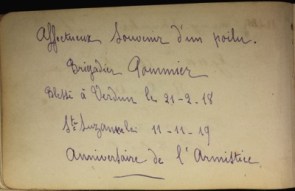 Affectueux Souvenir d'un poilu.
Brigadier Pommier
Blessé à Verdun le 21-2-18
11-11-19
Anniversaire de l'Armistice